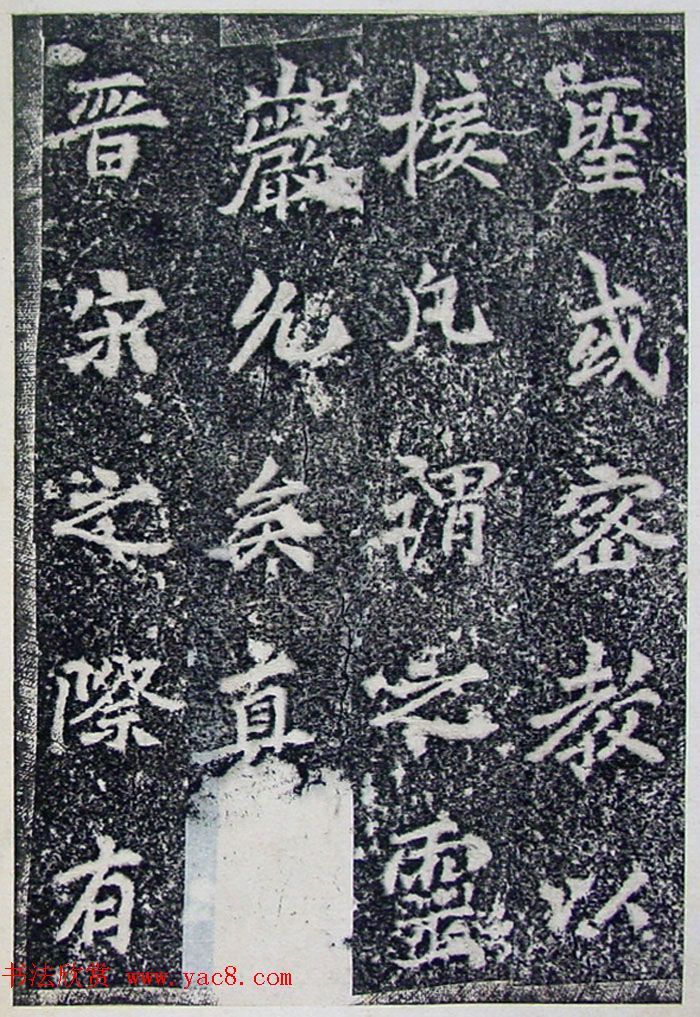 聖或密教以
接凡謂之靈
巖允矣真
晉宋之際有
书法欣赏 www.yac8.com